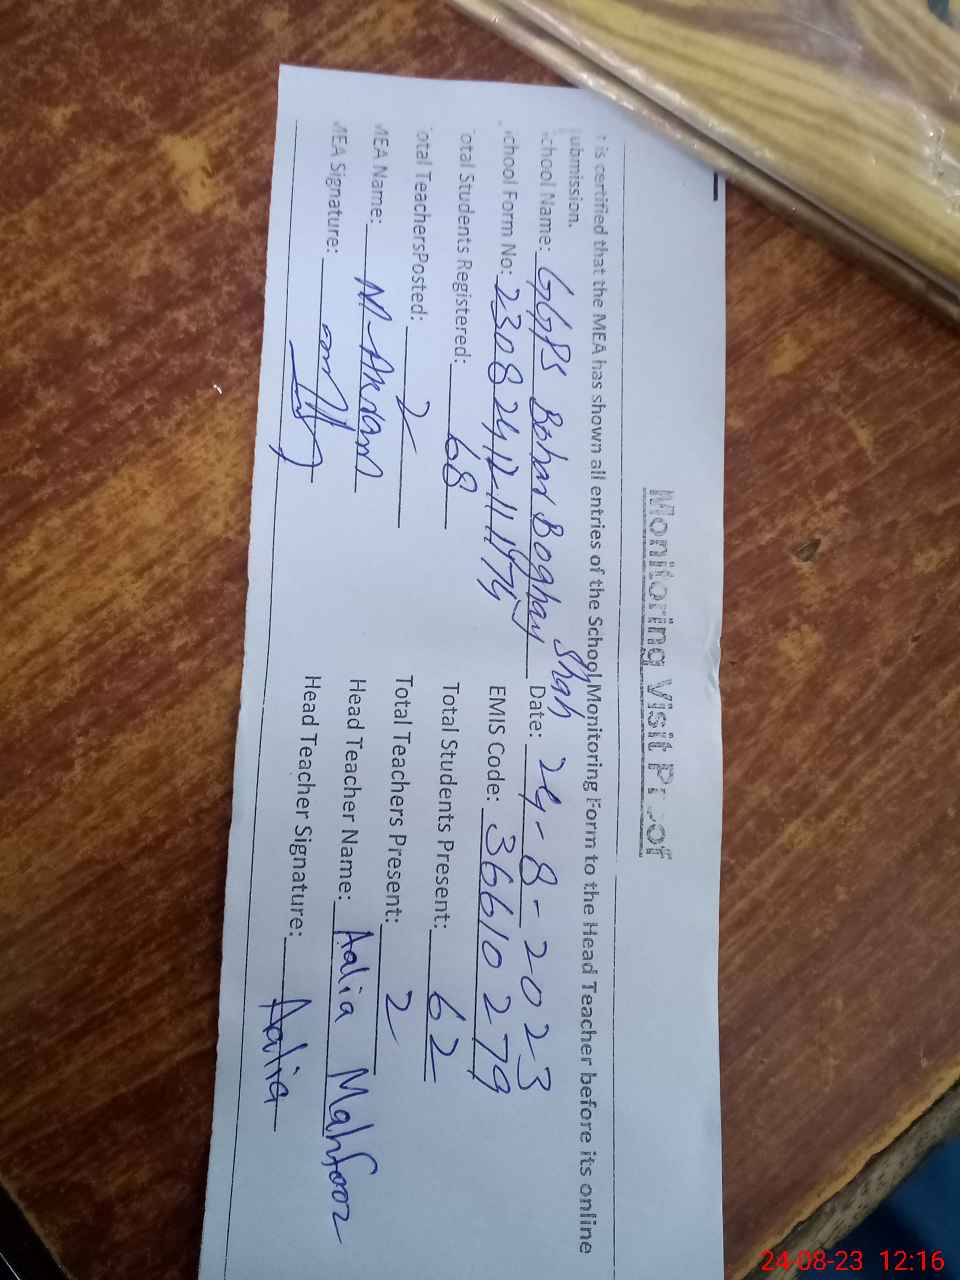 Monitoring Visit Proof
t is certified that the MEA has shown all entries of the School Monitoring Form to the Head Teacher before its online
ubmission.
chool Name: GGPS Bohar Boghay Shah Date: 24-8-2023
chool Form No: EMIS Code: 36610279
otal Students Registered: 68 Total Students Present: 62
otal TeachersPosted: 2 Total Teachers Present: 2
MEA Name: M-Akram Head Teacher Name: Aalia Mahfooz
MEA Signature: Head Teacher Signature: Aalia
24-08-23 12:16